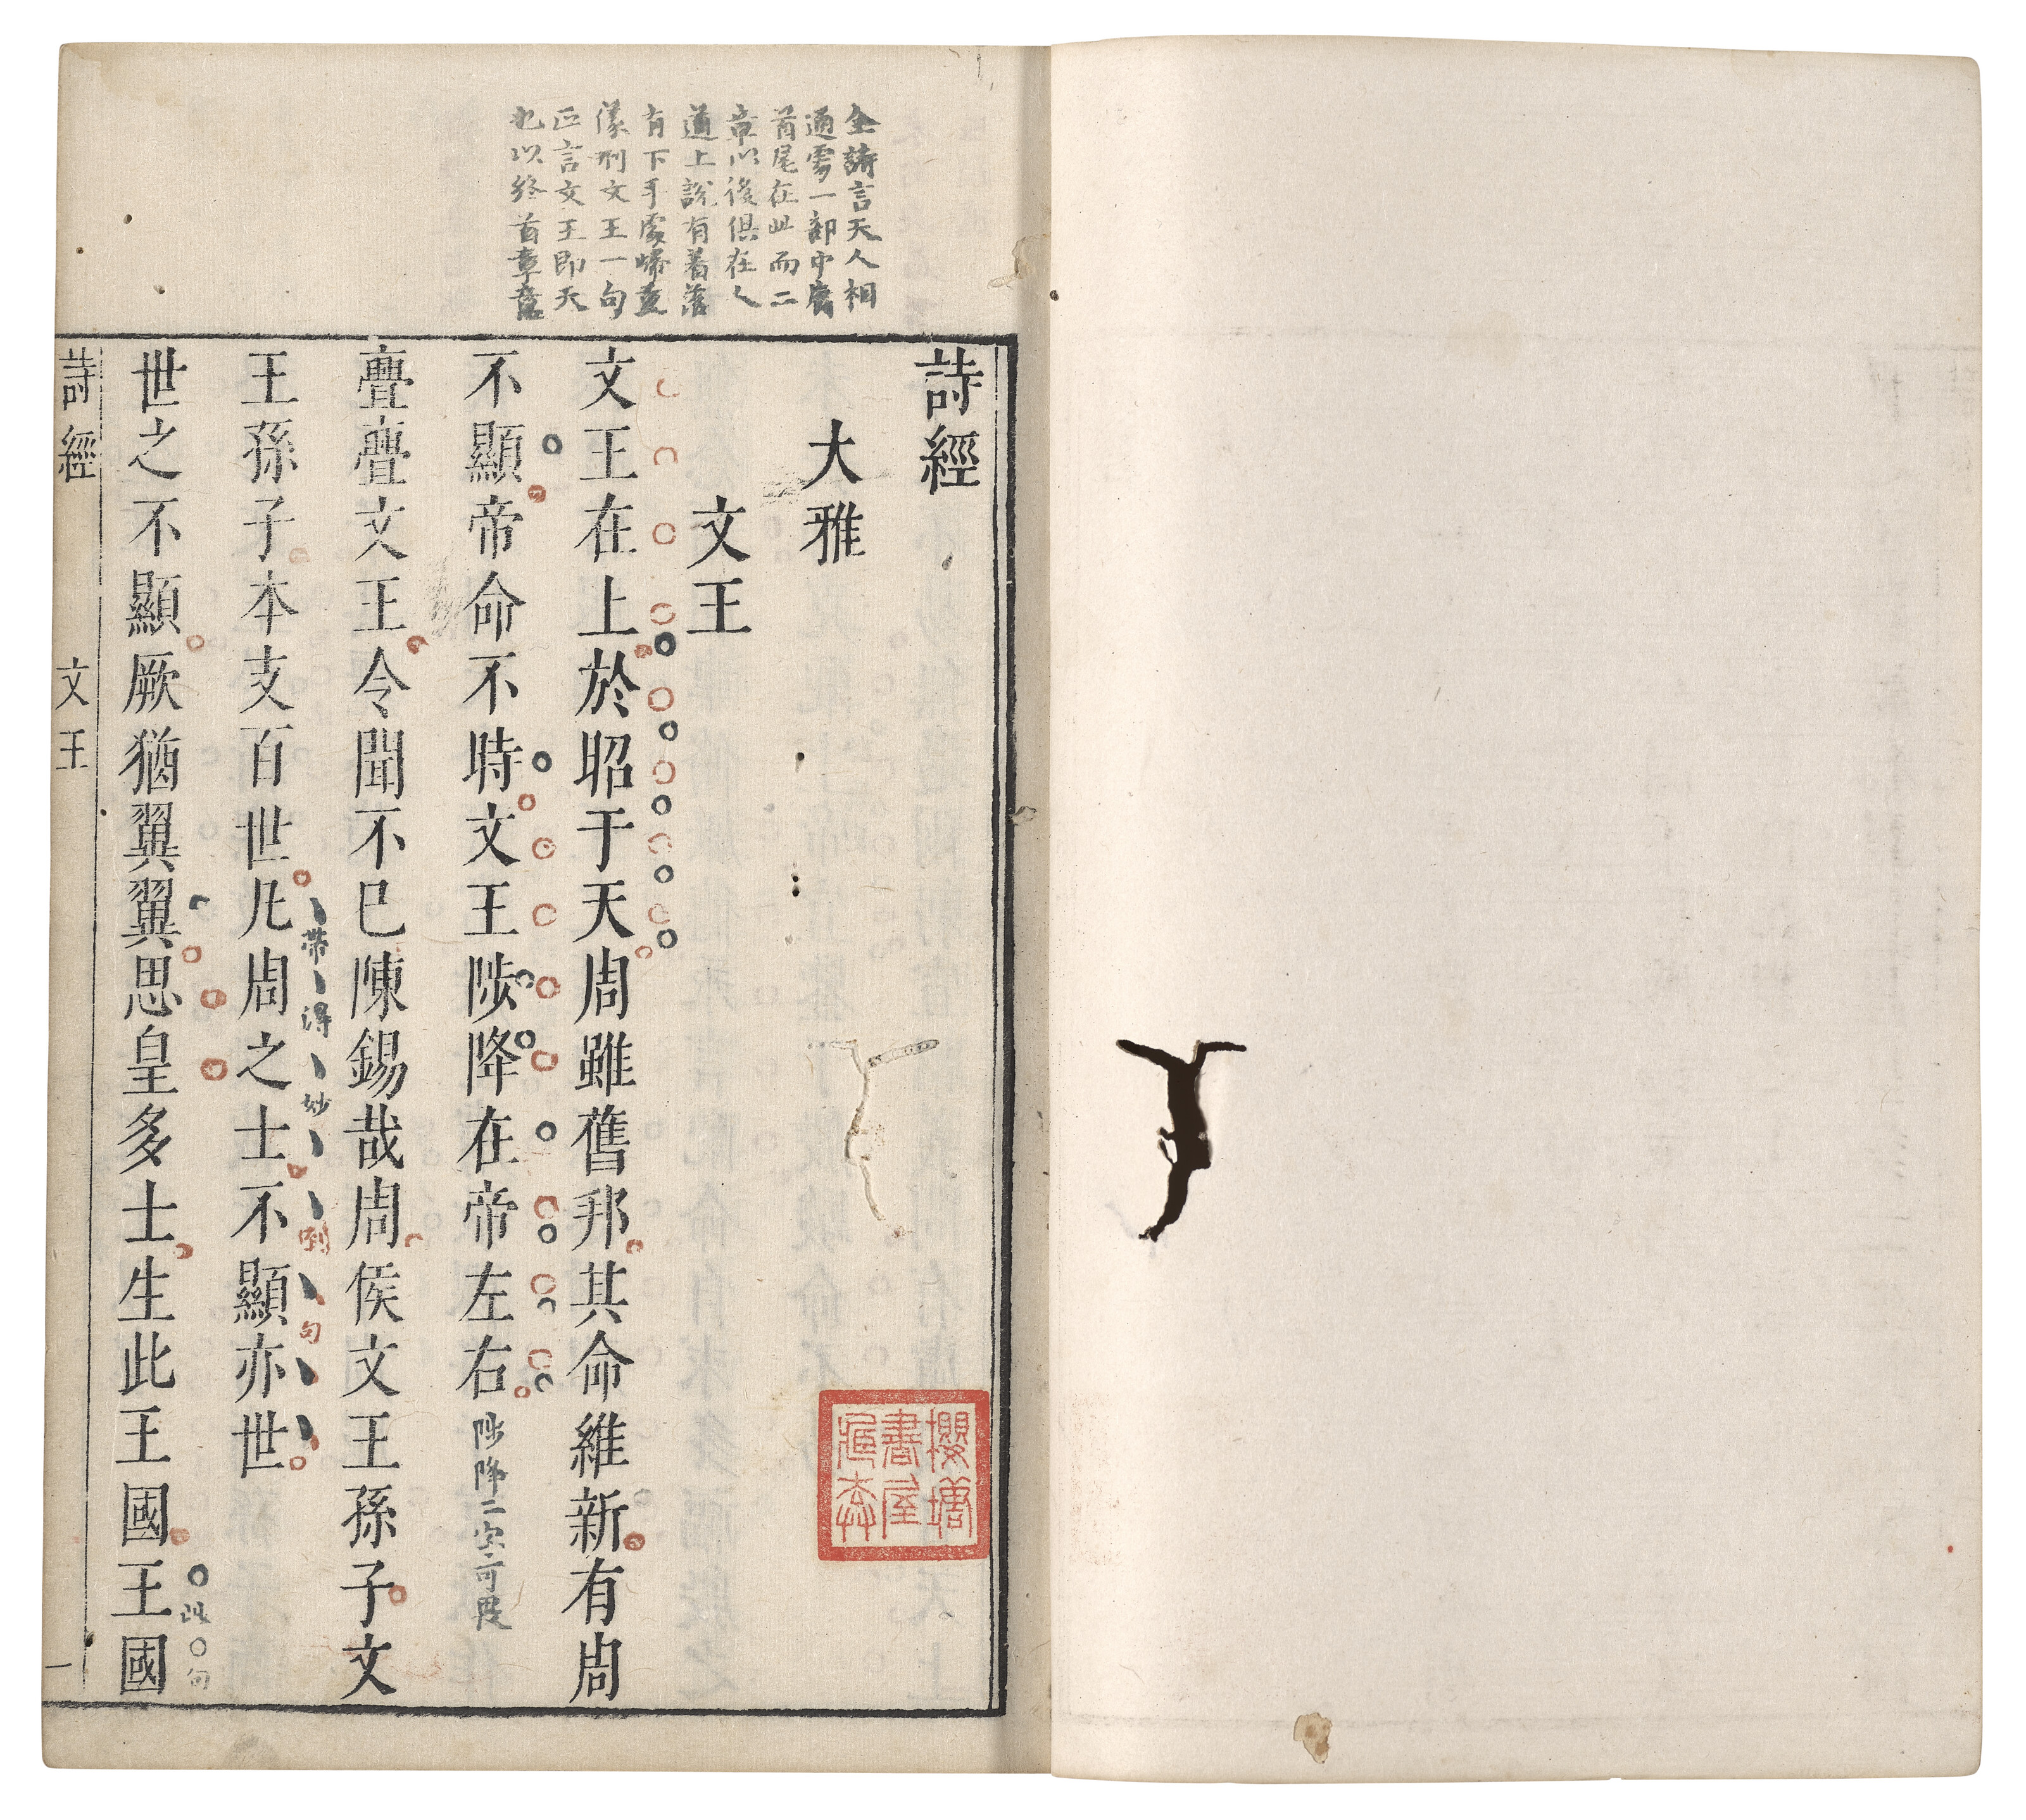 全詩言天人相
通處一部中庸
首尾在此而二
章以後俱在人
道上說有着落
有下手處歸重
儀刑文王一句
正言文王即天
也以終首章意
詩經
大雅
文王
文王在上於昭于天周雖舊邦其命維新有周
不顯帝命不時文王陟降在帝左右
陟降二字可畏
亹亹文王令聞不已陳錫哉周侯文王孫子文
帶得妙
王孫子本支百世凡周之士不顯亦世
倒句
世之不顯厥猶翼翼思皇多士生此王國王國
句
詩經
文王
一
櫻塘
書屋